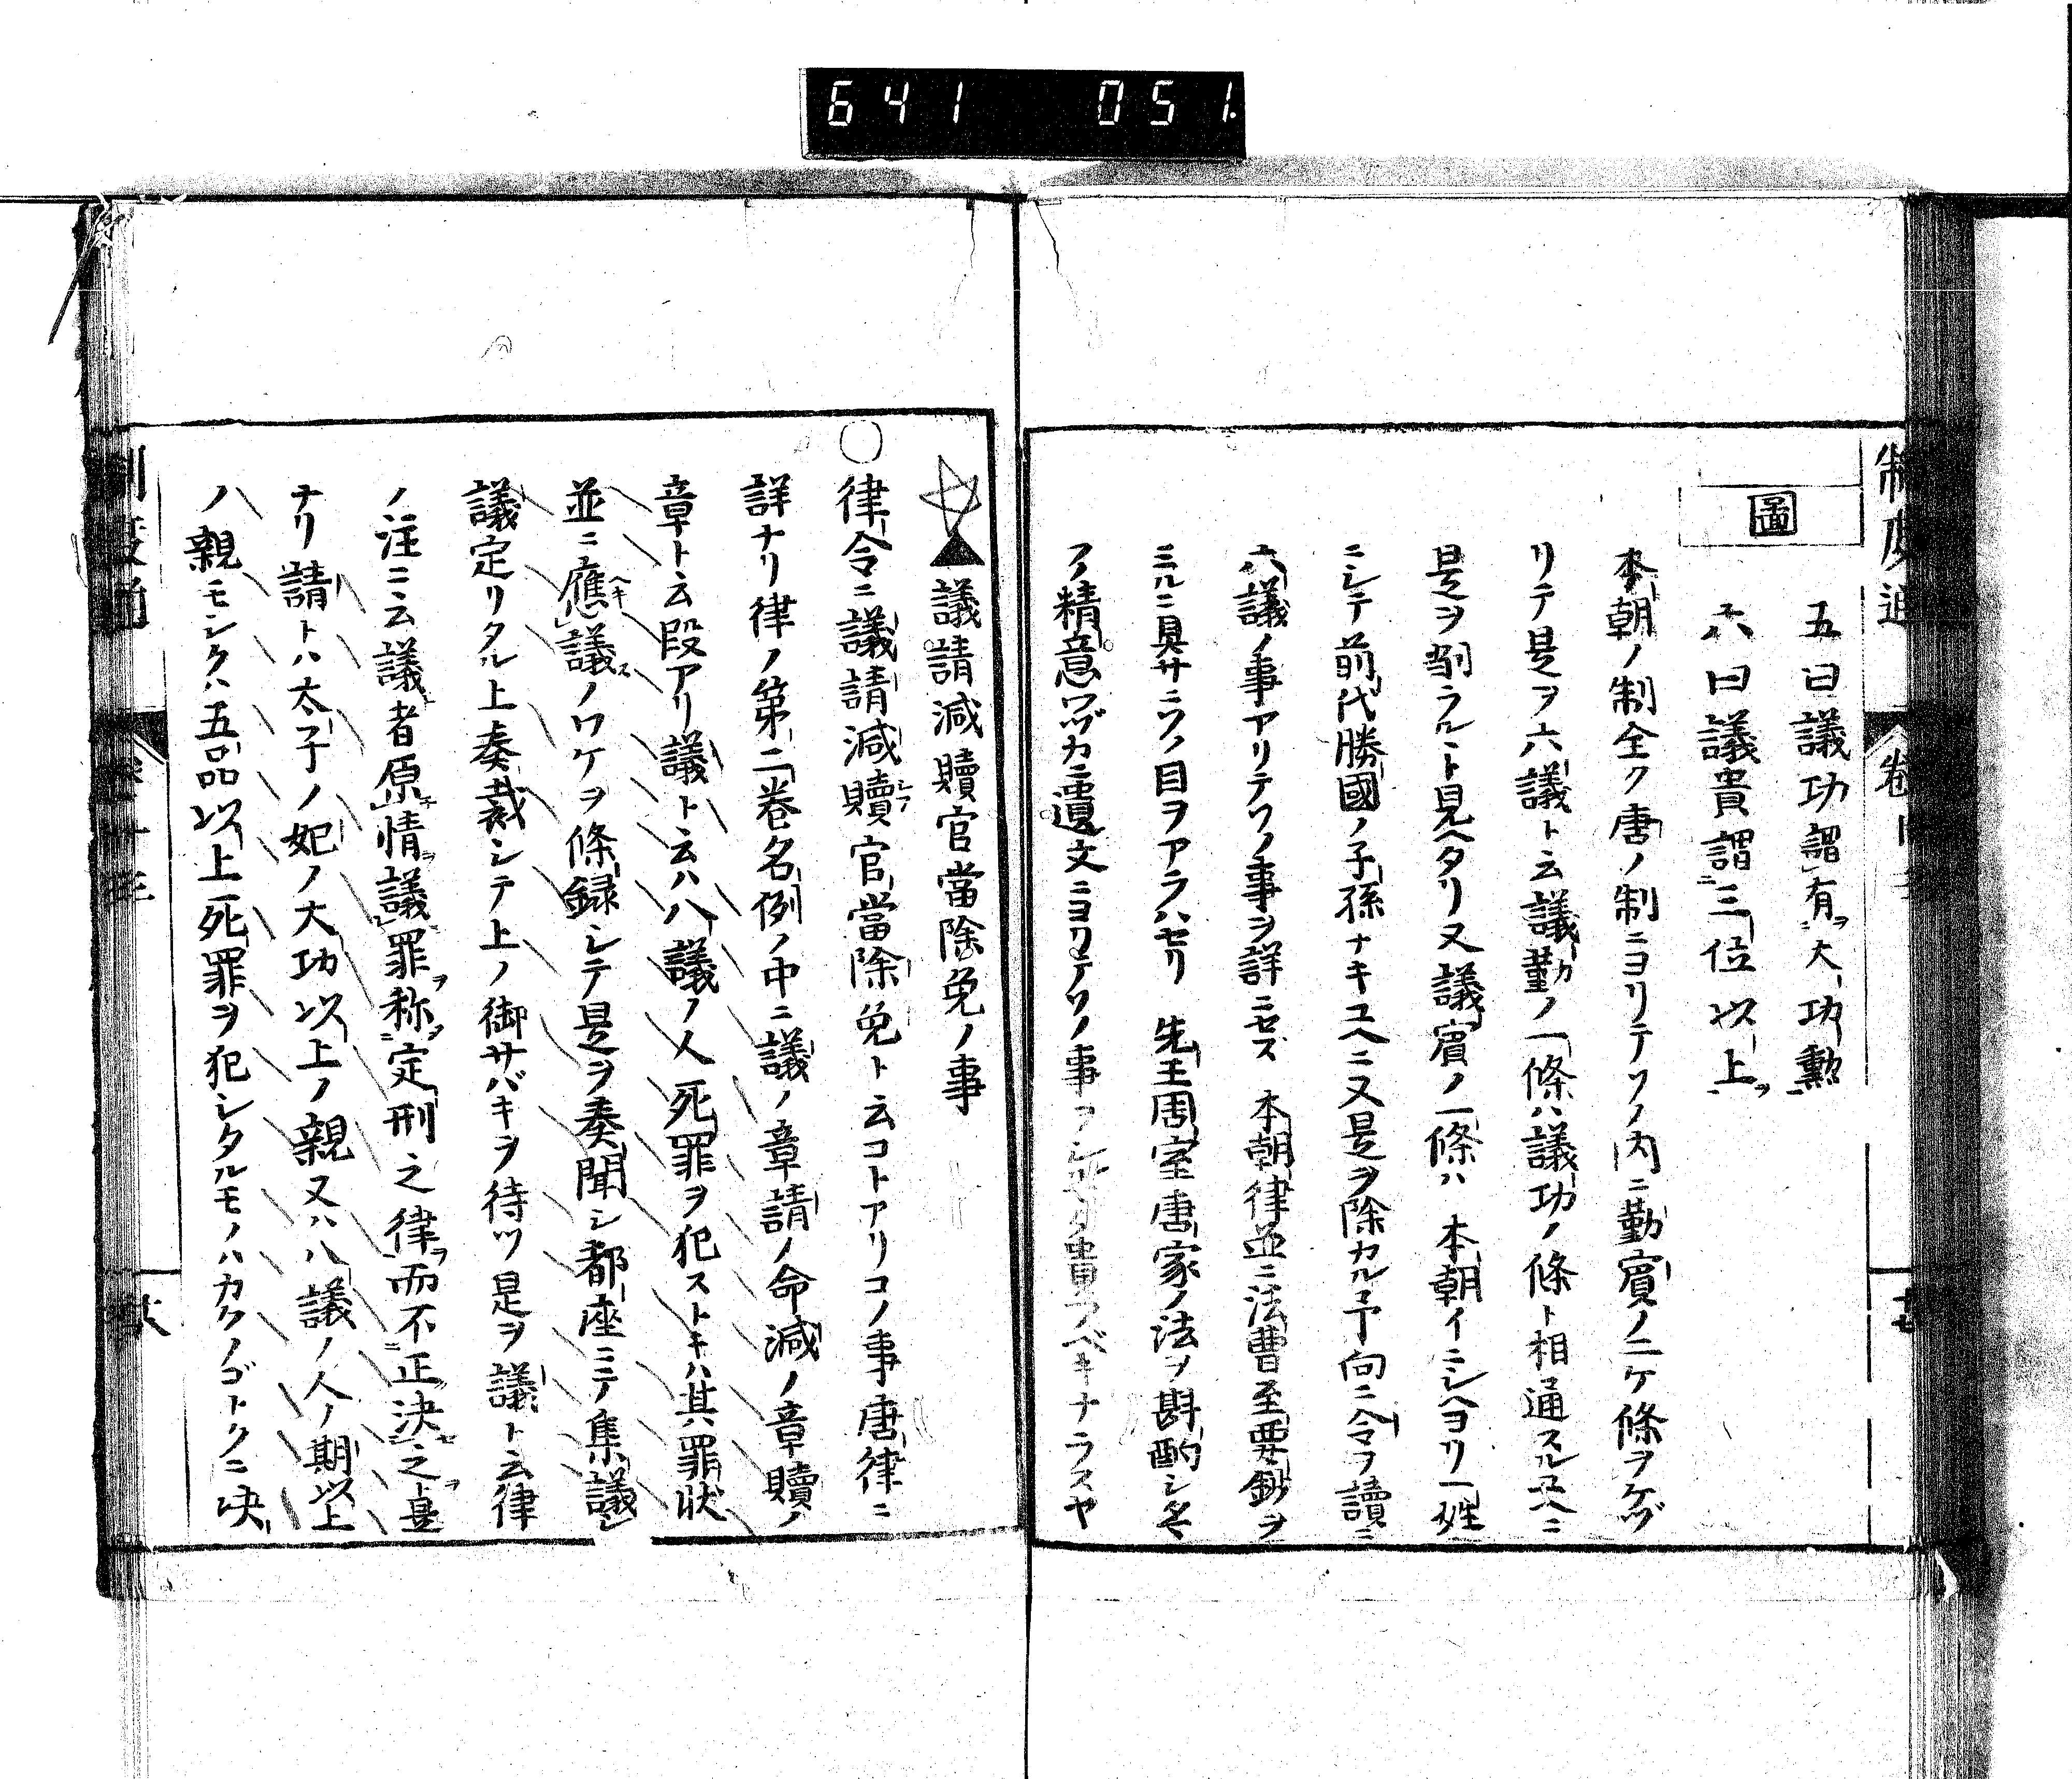 641 051.
五曰議功謂有大功勲
六曰議貴謂三位以上
圖
本朝ノ制全ク唐ノ制ニヨリテソノ内ニ勤賓ノ二ケ條ヲケヅ
リテ是ヲ六議ト云議勤ノ一條ハ議功ノ條ト相通スルユヘニ
是ヲ削ラルト見ヘタリ又議賓ノ一條ハ本朝イニシヘヨリ一姓
ニシテ前代勝國ノ子孫ナキユヘニ又是ヲ除カル予向ニ令ヲ讀ニ
六議ノ事アリテソノ事ヲ詳ニセス本朝律並ニ法曹至要鈔ヲ
ミルニ具サニソノ目ヲアラハセリ先王周室唐家ノ法ヲ斟酌シ玉
フノ精意ワヅカニ遺文ニヨリテソノ事ヲ貴フベキナラスヤ
議請減贖官當除免ノ事
○律令ニ議請減贖官當除免ト云コトアリコノ事唐律ニ
詳ナリ律ノ第二巻名例ノ中ニ議ノ章請ノ命減ノ章贖ノ
章ト云段アリ議ト云ハ八議ノ人死罪ヲ犯ストキハ其罪状
並ニ應ヘキ議スノワケヲ條録シテ是ヲ奏聞シ都座ニテ集議シ
議定リタル上奏裁シテ上ノ御サバキヲ待ツ是ヲ議ト云律
ノ注ニ云議者原情議罪称定刑之律而不正決之是
ナリ請トハ太子ノ妃ノ大功以上ノ親又ハ八議ノ人ノ期以上
ノ親モシクハ五品以上死罪ヲ犯シタルモノハカクノゴトクニ決